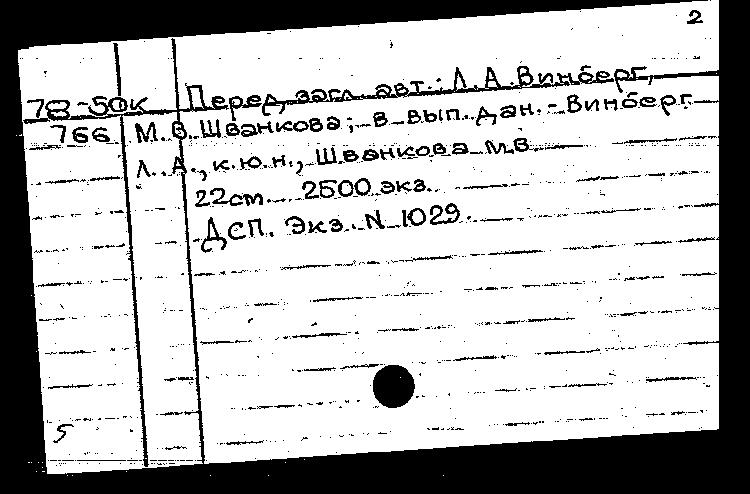 2
78-50к Перед загл. авт.: Л.А. Винберг,
766 М.В. Шванкова; в вып. дан. - Винберг
Л.А., к.ю.н., Шванкова М.В.
22 см. 2500 экз.
ДСП. Экз. N 1029.
5